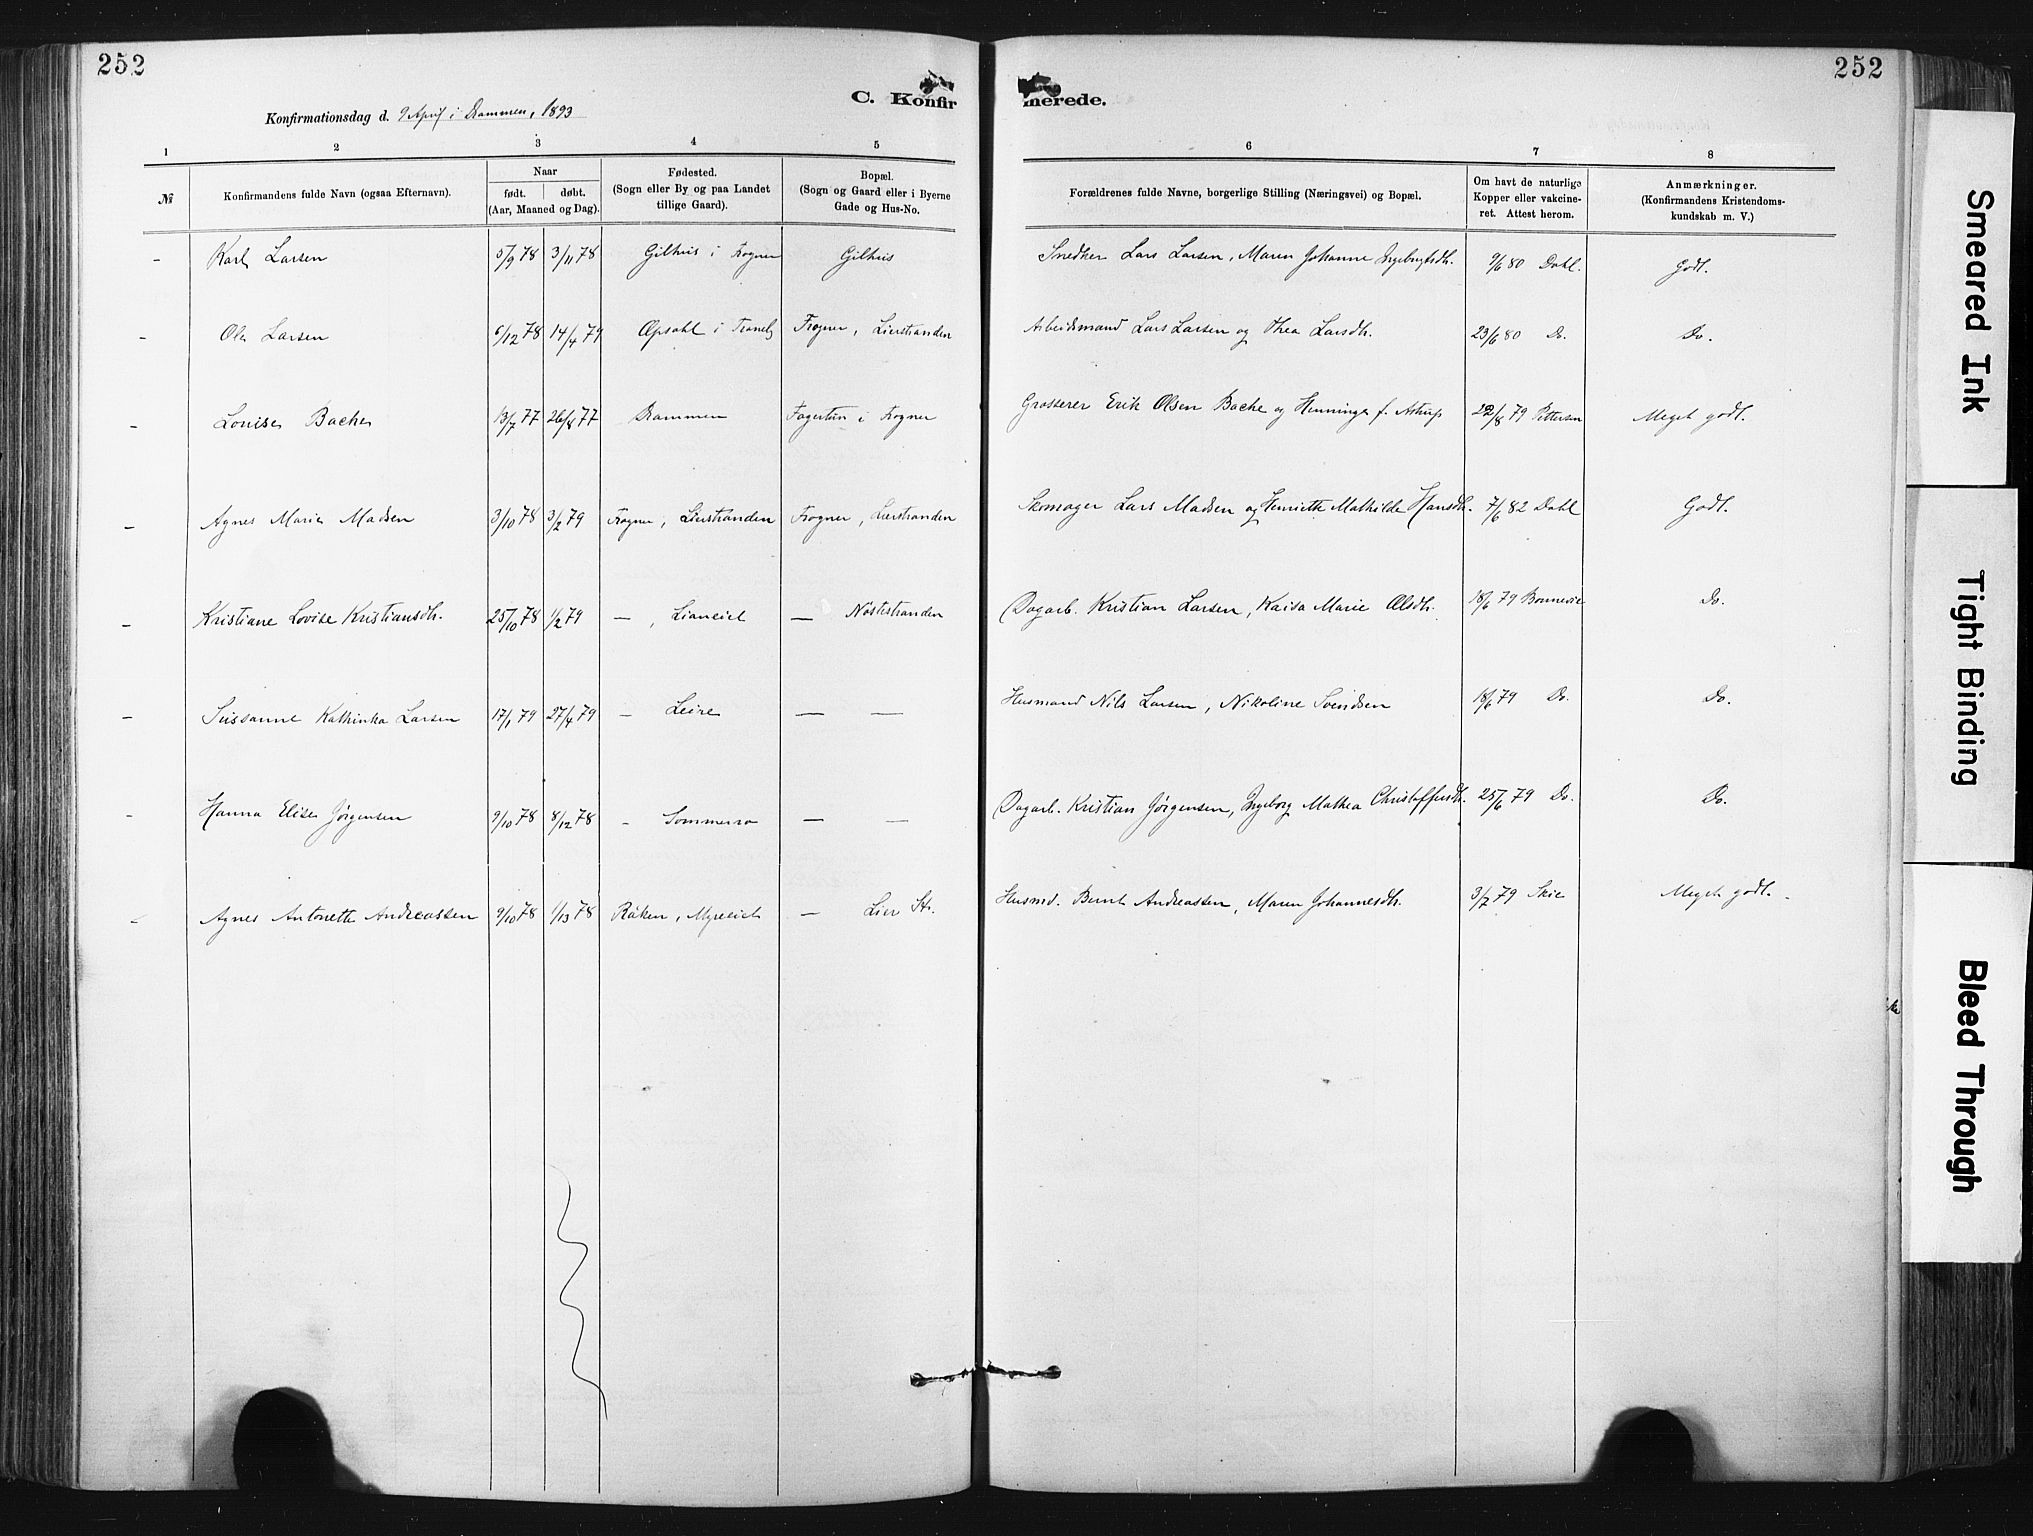 252
252
C. Konfirmerede.
Konfirmationsdag d. 9 April i Drammen, 1893
1 2 3 4 5 6 7 8
№
Konfirmandens fulde Navn (ogsaa Efternavn).
Naar
født. døbt.
(Aar, Maaned og Dag).
Fødested.
(Sogn eller By og paa Landet
tillige Gaard).
Bopæl.
(Sogn og Gaard eller i Byerne
Gade og Hus-No.
Forældrenes fulde Navne, borgerlige Stilling (Næringsvei) og Bopæl.
Om havt de naturlige
Kopper eller vakcine-
ret. Attest herom.
Anmærkninger.
(Konfirmandens Kristendoms-
kundskab m. V.)
- Karl Larsen 5/9 78 3/11 78 Gilhus i Frogner Gilhus Snedker Lars Larsen, Maren Johanne Ingebrigtsdh. 9/6 80 Dahl. Godt.
- Ole Larsen 6/12 78 14/4 79 Opsahl i Tranby Frogner, Lierstranden Arbeidsmand Lars Larsen og Thea Larsdh. 23/6 80 Do. Do.
- Louise Bache 13/7 77 26/8 77 Drammen Fagertun i Frogner Grosserer Erik Olsen Bache og Henninge f. Astrup 22/8 79 Pettersen Meget godt.
- Agnes Marie Madsen 3/10 78 3/2 79 Frogner, Lierstranden Frogner, Lierstranden Skomager Lars Madsen og Henriette Mathilde Hansdh. 7/6 82 Dahl Godt.
- Kristiane Lovise Kristiansdh. 25/10 78 1/2 79 — , Lianeiet — Nøstestranden Dagarb. Kristian Larsen, Kaisa Marie Olsdh. 18/6 79 Bonnevie Do.
- Sussanne Kathinka Larsen 17/1 79 27/4 79 - Leire — — Husmand Nils Larsen, Nikoline Svendsen 18/6 79 Do. Do.
- Hanna Elise Jørgensen 9/10 78 8/12 78 - Sommerro — — Dagarb. Kristian Jørgensen, Ingeborg Mathea Christoffersdh. 25/6 79 Do. Do.
- Agnes Antonette Andreassen 9/10 78 1/13 78 Röken, Myreeiet — Lier Str. Husmd. Bernt Andreassen, Maren Johannesdh. 3/7 79 Skie Meget godt.
Smeared Ink
Tight Binding
Bleed Through